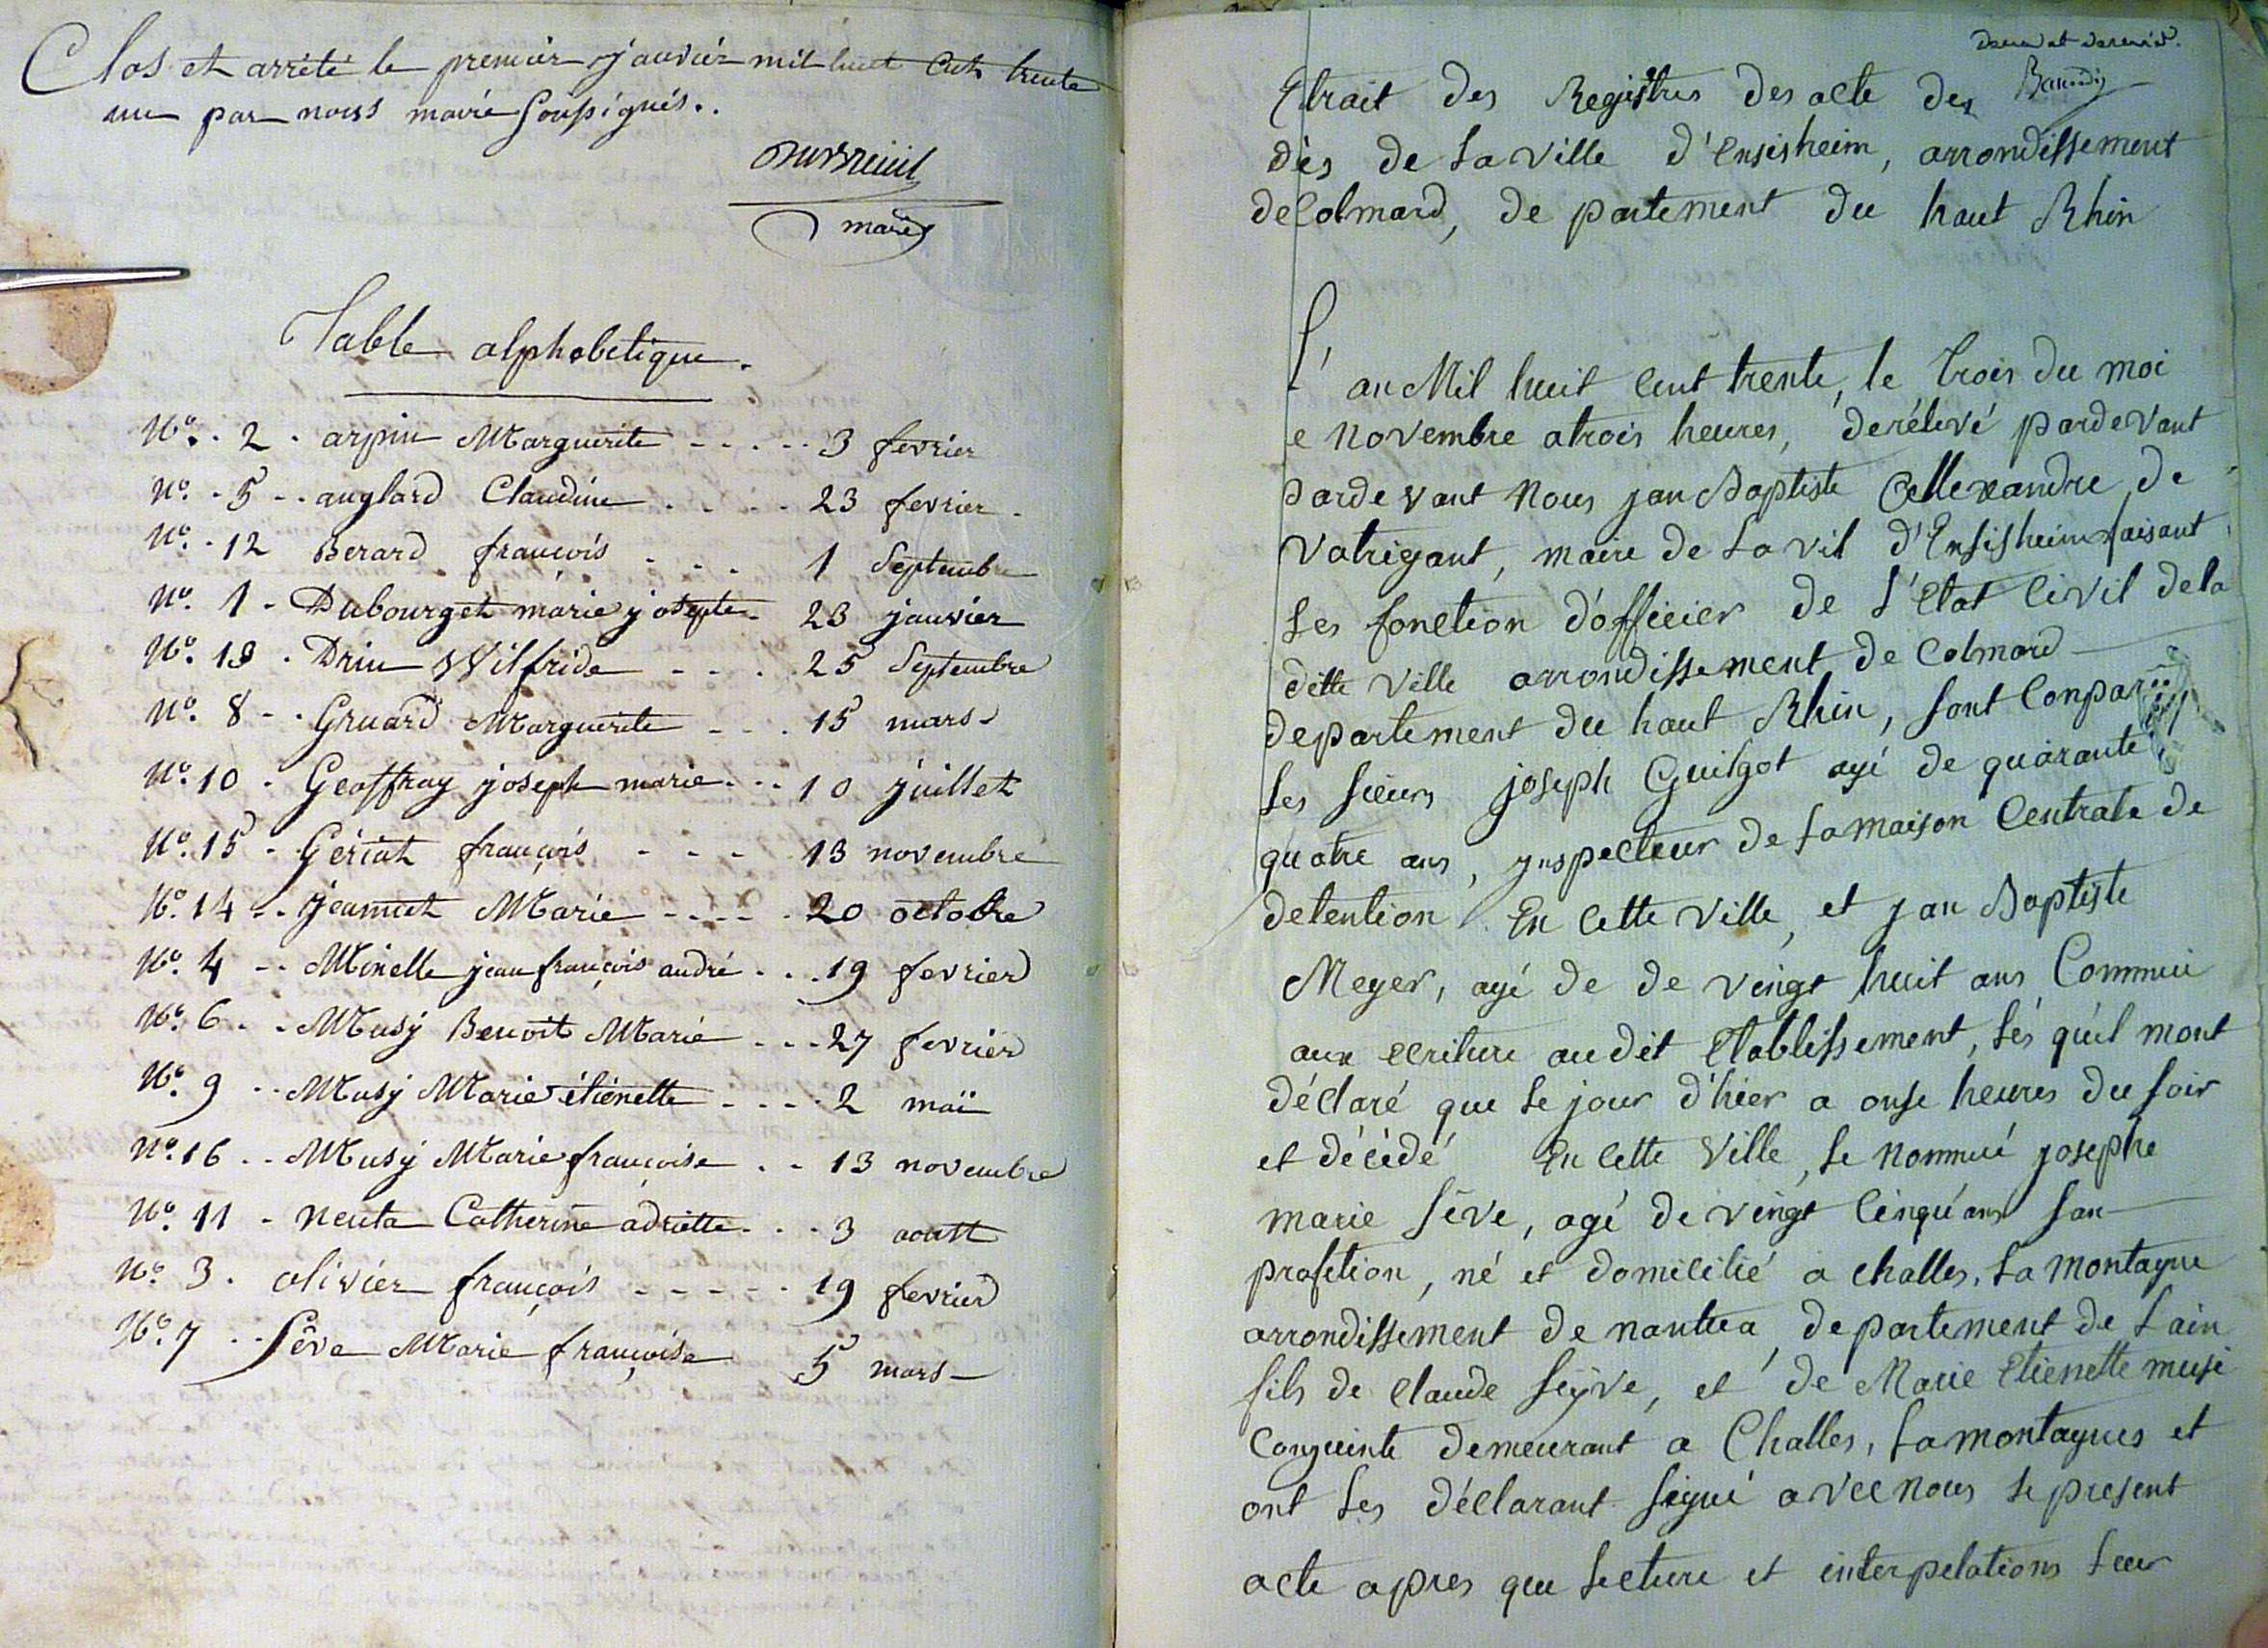 Clos et arrêté le premier janvier mil huit cent trente
un par nous maire soussignés..
maire
Table alphabetique.
N°. 2 . arpin Marguerite - - . - - 3 fevrier
N°. 5 - . anglard Claudine . - . - 23 fevrier .
N°. 12 Berard françois . - . 1 Septembre
N°. 1 - Dubourget marie josephte - 23 janvier
N°. 13 . Driu Wilfride - - . . 25 Septembre
N°. 8 - . Gruard Marguerite - - . 15 mars
N°. 10 - Geoffray joseph marie - - . 10 juillet
N°. 15 - Gériat françois - - - 13 novembre
N°. 14 - . jeannet Marie - . - - . 20 octobre
N°. 4 - . Minelle jean françois andré . . . 19 fevrier
N°. 6 . - Musy Benoit Marie . - - 27 fevrier
N°. 9 . . Musy Marie étienette - . - . 2 maï
N°. 16 . . Musy Marie françoise . - 13 novembre
N°. 11 - neuta Catherine adriette . . . 3 aoutt
N°. 3 . olivier françois - - - - . 19 fevrier
N°. 7 . . Sêve Marie françoise 5 mars
Etrait des Registres des acte des
dés de La ville d'Ensisheim, arrondissement
de Colmard, de partement du haut Rhin
L'
an Mil huit cent trente, le trois du moi
e novembre a trois heures, derélevé pardevant
pardevant nous jan Baptiste Allexandre de
Vatrigant, maire de La vil d'Ensisheim faisant
Les fonction d'officier de L'Etat Civil de la
ditte ville arrondissement de Colmard
departement du haut Rhin, sont Conpar
Les sieurs joseph Guilgot agé de quarante
quatre ans, ynspecteur de La maison Centrale de
detention En Cette Ville, et jan Baptiste
Meyer, agé de de vingt huit ans Commui
aux ecriture audit Etablissement, Lés quil mont
déclaré que Le jour d'hier a onse heures du soir
et décédé En Cette Ville, Le nommé josephe
marie Sêve, agé de vingt Cinq ans san
profetion, né et domicilié a challes, La montagne
arrondissement de nantua, departement de Lain
fils de Claude seyve, et de Marie Etienette musi
Conjuinte demeurant a Challes, La montagnes et
ont Les déclarant signé avec nous Le present
acte apres que Lecture et interpelations Leur